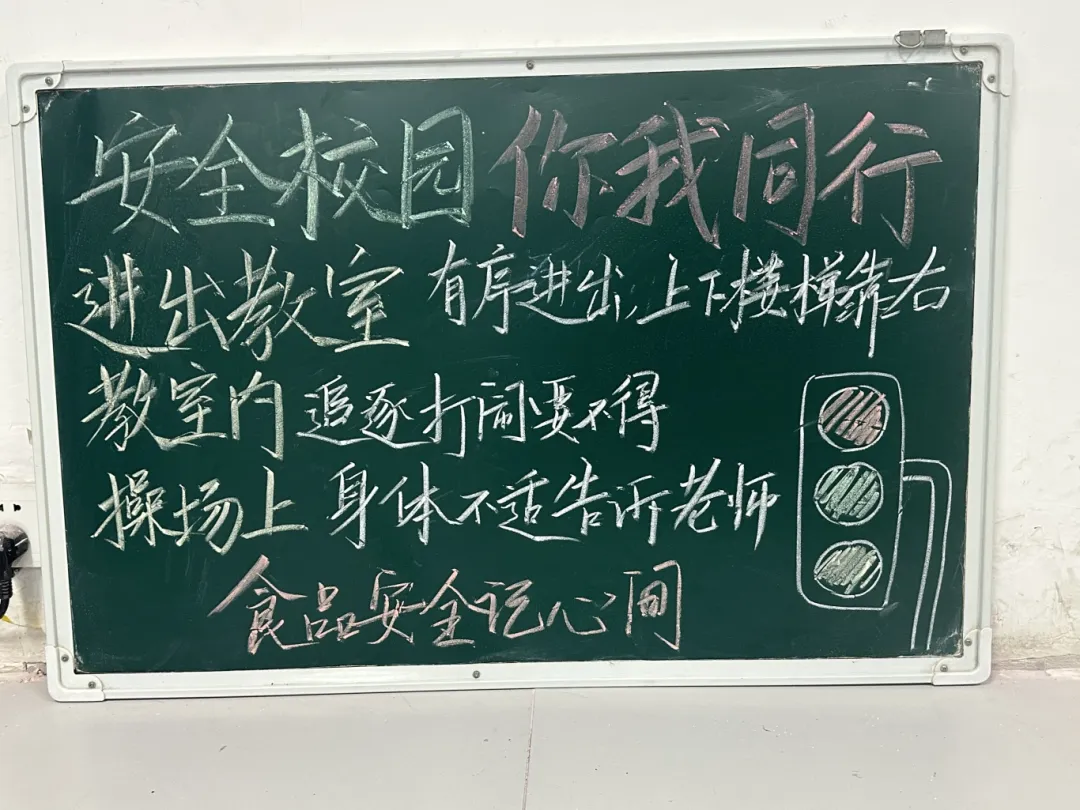 安全校园 你我同行
进出教室 有序进出,上下楼梯靠右
教室内 追逐打闹要不得
操场上 身体不适告诉老师
食品安全记心间